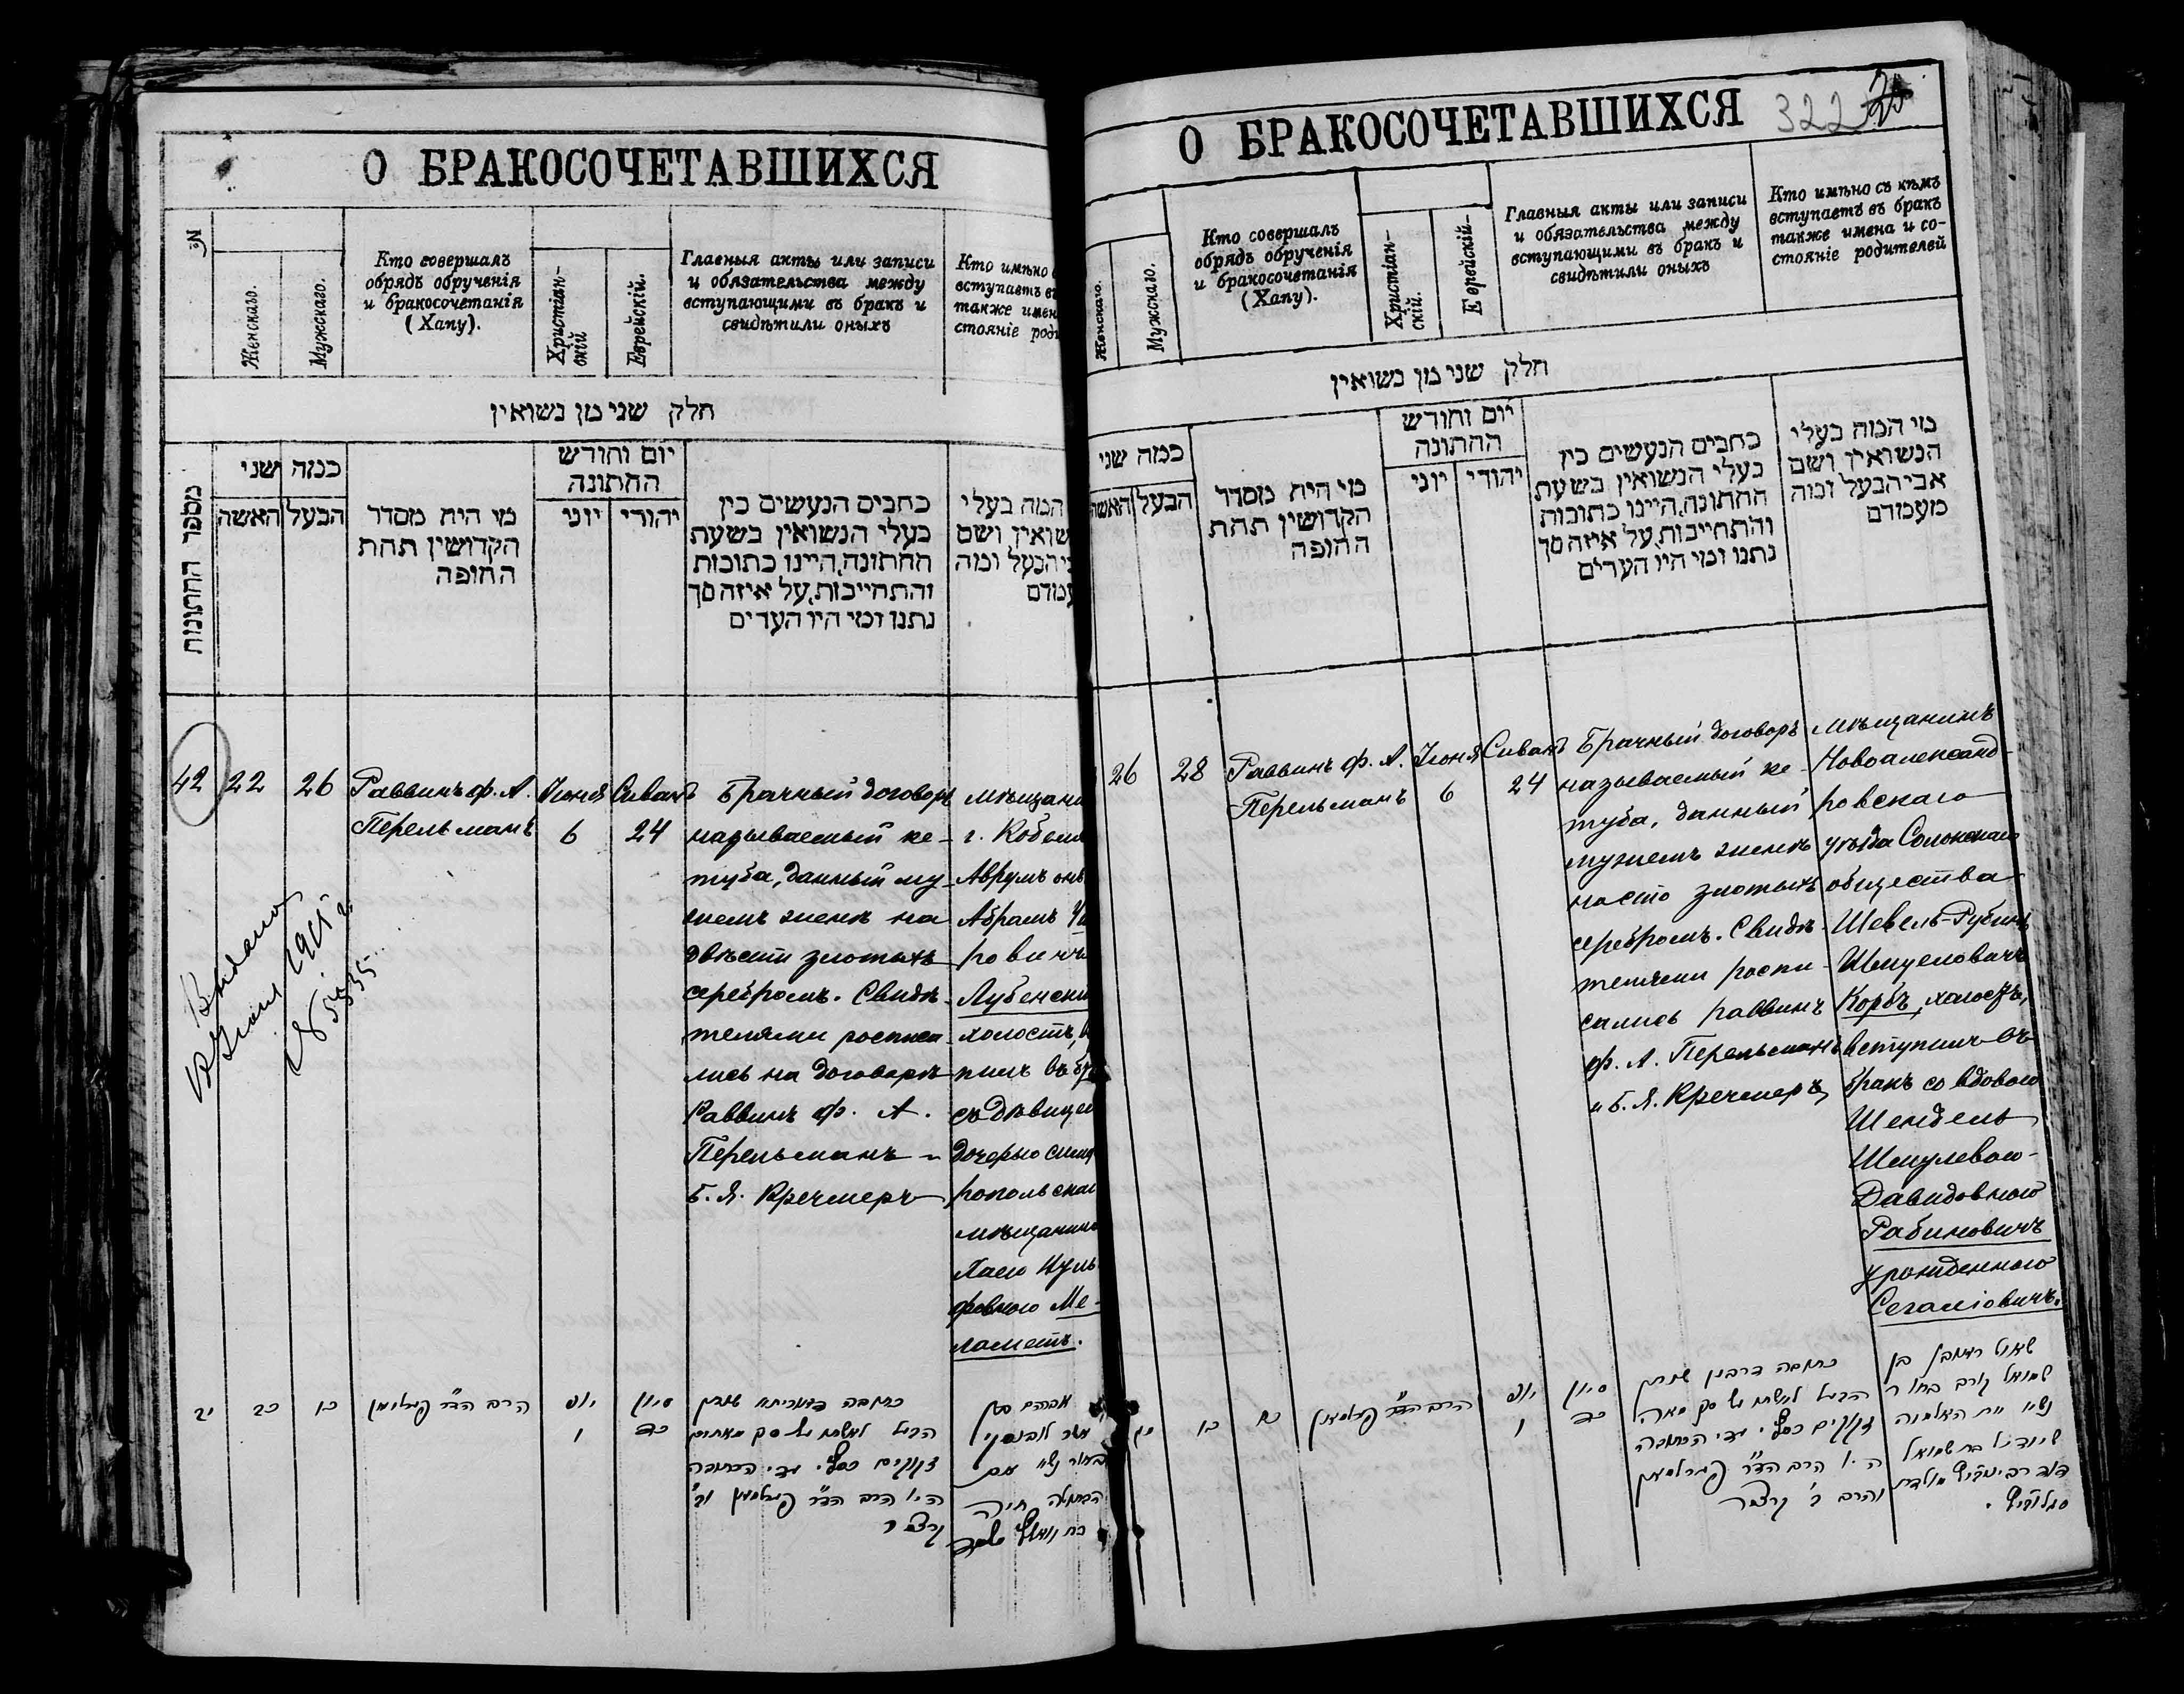 О БРАКОСОЧЕТАВШИХСЯ
№
Женскаго.
Мужскаго.
Кто совершалъ
обрядъ обрученія
и бракосочетанія
(Хапу).
Христіан-
скій
Еврейскій.
Главныя акты или записи
и обязательства между
вступающими въ бракъ и
свидѣтили оныхъ
Кто имѣно
вступаетъ въ
также имен
стояніе роди
חלק שני מן נשואין
מספר החתונות
כמה שני
האשה
הבעל
מי היה מסדר
הקדושין תחת
החופה
יום וחודש
החתונה
יוני
יהודי
כתבים הנעשים בין
בעלי הנשואין בשעת
החתונה, היינו כתובות
והתחייבות, על איזה סך
נתנו ומי היו העדים
המה בעלי
שואין ושם
יהבעל ומה
עמדם
42
22
26
Раввинъ ф. А.
Перельманъ
Іюня
6
Сиванъ
24
Брачный договоръ
называемый ке-
туба, данный му-
жемъ женѣ на
двѣсти злотыхъ
серебромъ. Свидѣ-
телями росписа
лись на договорѣ
Раввинъ ф. А.
Перельманъ и
Б. Я. Кречмеръ
мѣщани
г. Кобеля
Аврумъ онъ
Абрамъ
ровичъ
Лубенски
холостъ,
пилъ въ бр
съ дѣвицей
дочерью симф
ропольскаго
мѣщанина
Хаею
фовною Ме-
ламетъ.
Выдана
1915 г.
№ 5535
כו
הרב הד״ר פערלמאן
יוני
ו
סיון
כד
הבעל לאשתו על סך מאתים
זקוקים כסף. עדי הכתובה
היו הרב הד״ר פערלמאן
קרצמר
אברהם בן
О БРАКОСОЧЕТАВШИХСЯ
322
Женскаго.
Мужскаго.
Кто совершалъ
обрядъ обрученія
и бракосочетанія
(Хапу).
Христіан-
скій.
Еврейскій-
Главныя акты или записи
и обязательства между
вступающими въ бракъ и
свидѣтили оныхъ
Кто имѣно съ кѣмъ
вступаетъ въ бракъ
также имена и со-
стояніе родителей
חלק שני מן נשואין
כמה שני
האשה
הבעל
מי היה מסדר
הקדושין תחת
החופה
יום וחודש
החתונה
יוני
יהודי
כתבים הנעשים בין
בעלי הנשואין בשעת
החתונה, היינו כתובות
והתחייבות, על איזה סך
נתנו ומי היו העדים
מי המה בעלי
הנשואין ושם
אבי הבעל ומה
מעמדם
26
28
Раввинъ ф. А.
Перельманъ
Іюня
6
Сиванъ
24
Брачный договоръ
называемый ке-
туба, данный
мужемъ женѣ
на сто злотыхъ
серебромъ. Свидѣ-
телями роспи-
сались раввинъ
ф. А. Перельманъ
и Б. Я. Кречмеръ
мѣщанинъ
Новоалександ-
ровскаго
уѣзда Солокскаго
общества
Шевель-Рубинъ
Шмуеловичъ
Корбъ, холостъ,
вступилъ въ
бракъ со вдовою
Шендель
Шмулевою-
Давидовною
Рабиновичъ
урожденною
Сегаловичъ.
כו
הרב הד״ר פערלמאן
יוני
ו
סיון
כד
כתובה דרבנן שנתן
הבעל לאשתו על סך מאה
זקוקים כסף. עדי הכתובה
היו הרב הד״ר פערלמאן
והרב ר׳ קרצמר
שאול ראובן בן
שמואל קורב בחור
נשוי עם האלמנה
שיינדל בת שמואל
דוד ראבינאוויץ מולדת
סגלוביץ.